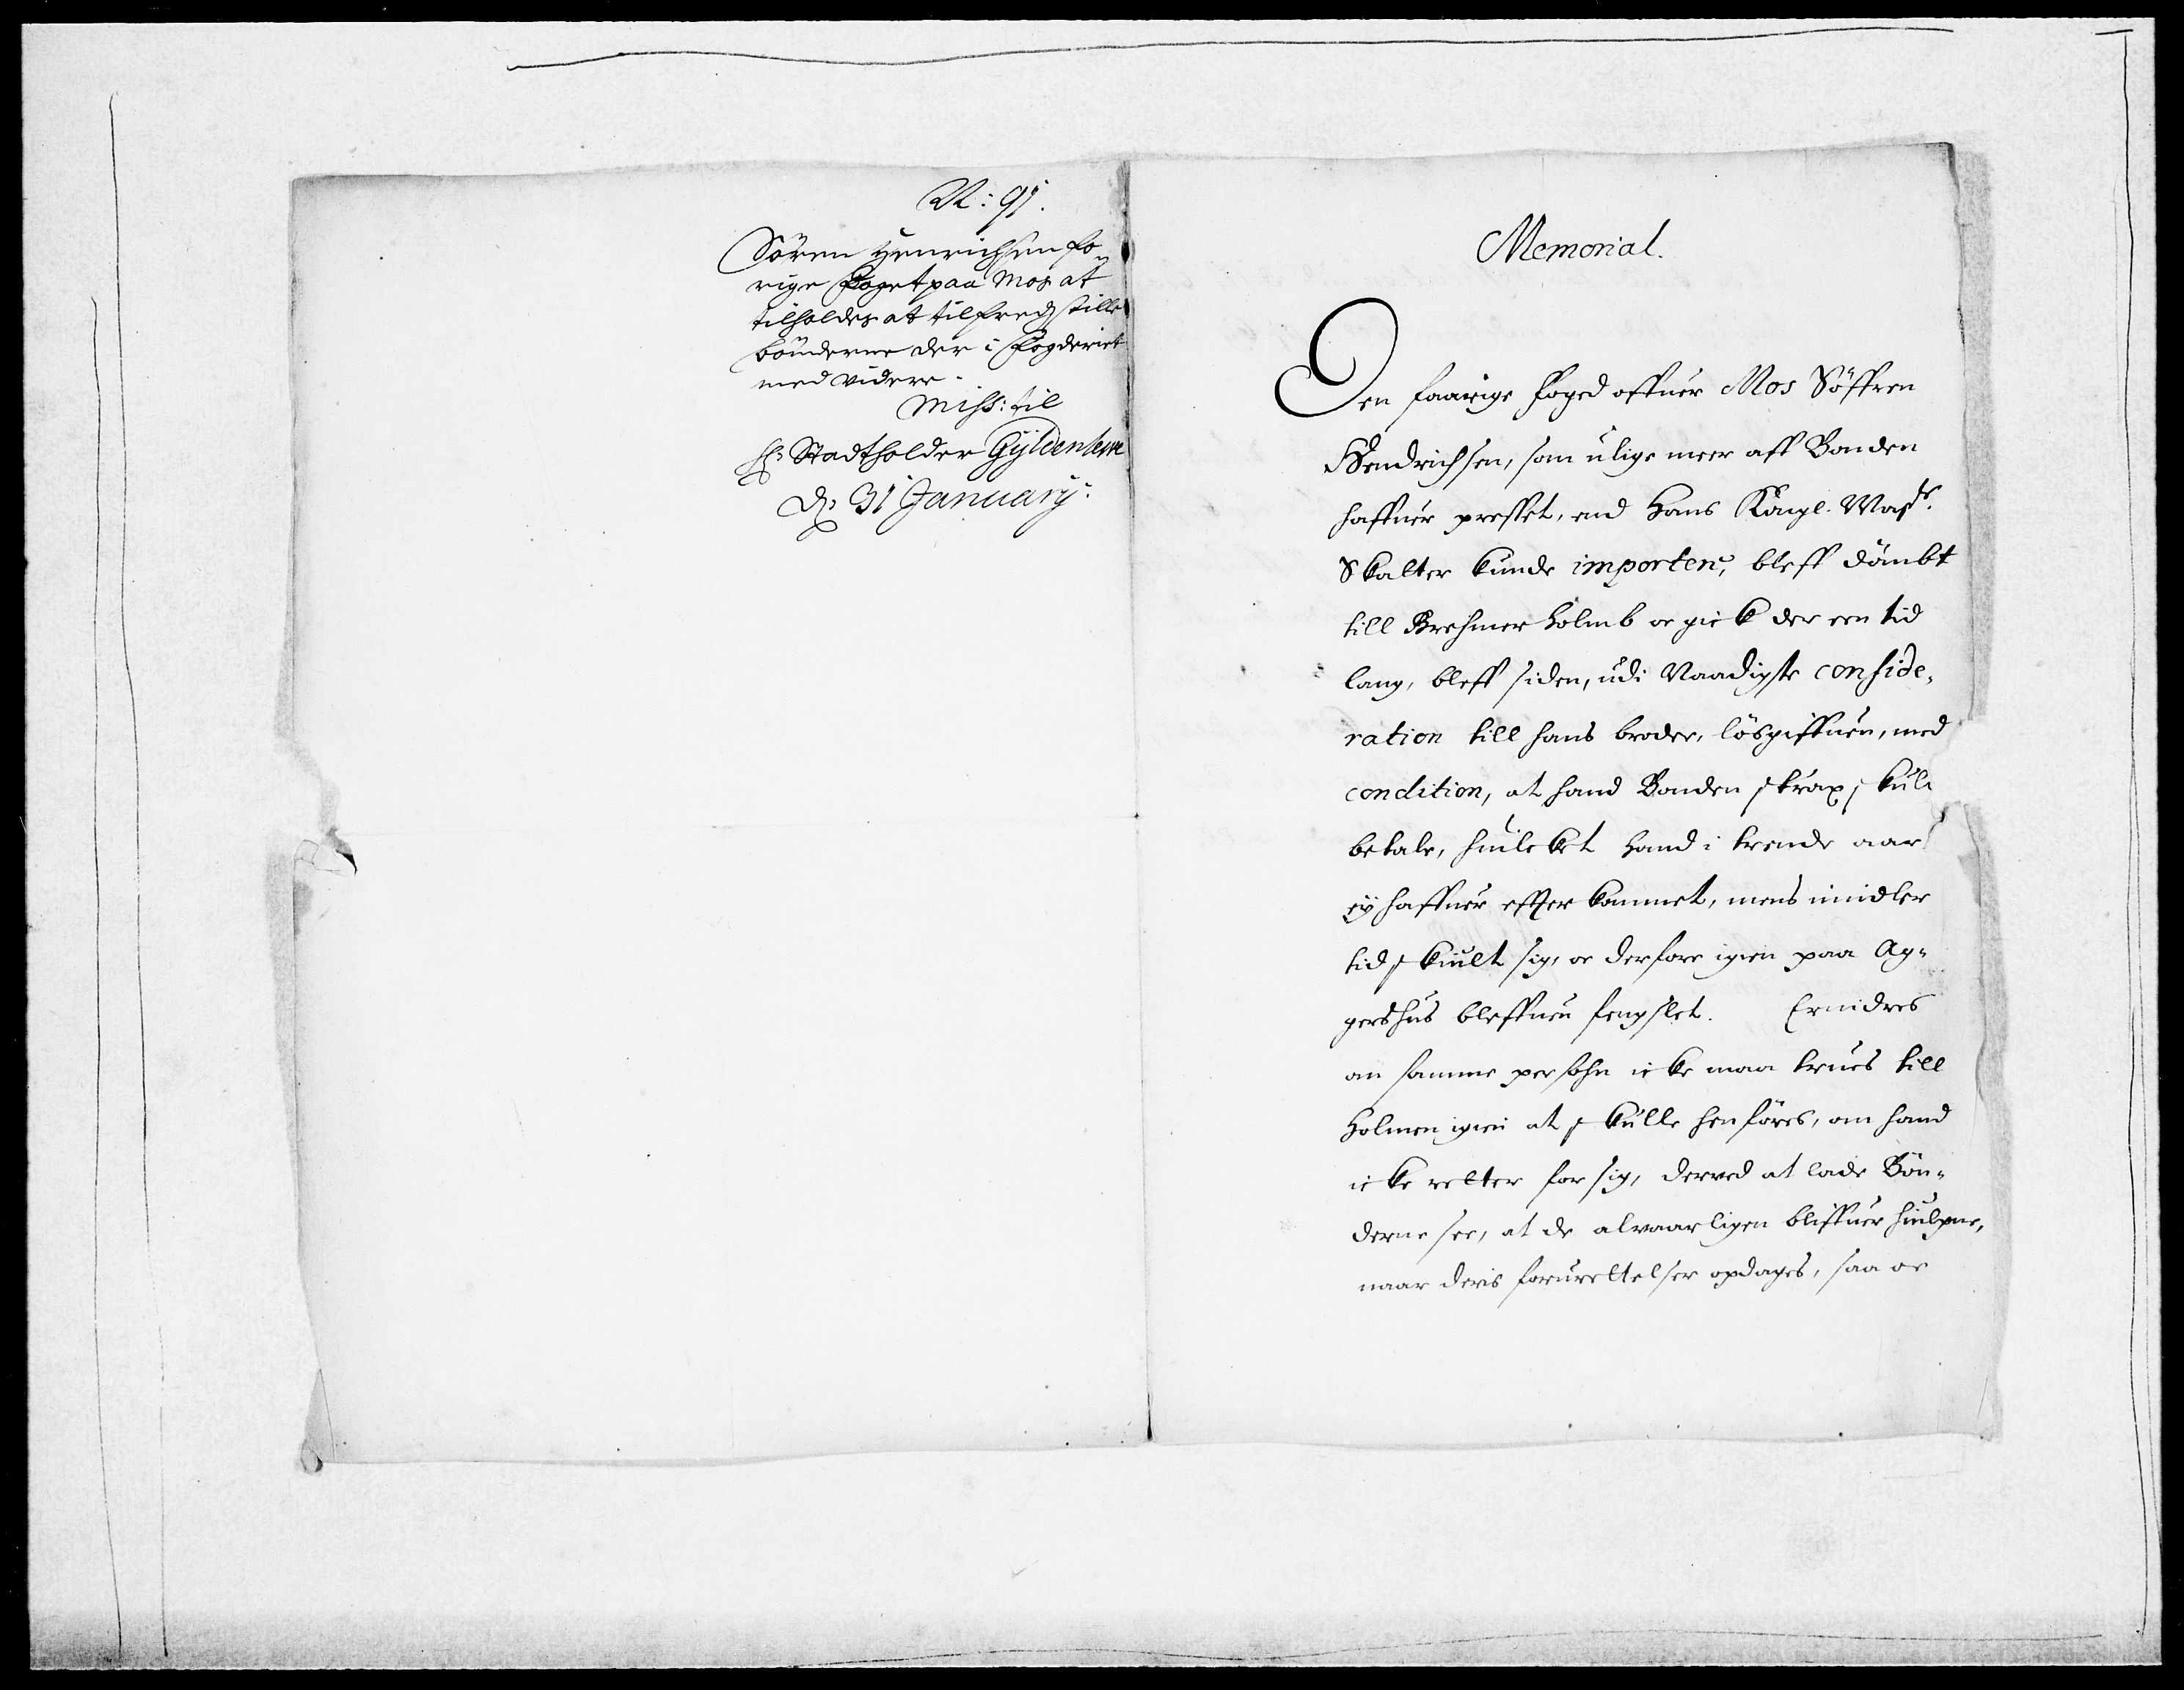 N: 91.
Sören Henrichsen fo-
rige Foget paa Mos at
tilholdes at tilfredsstille
bönderne der i Fogderiet
med videre.
Miss: til
H: Stadtholder Gyldenlewe
D: 31 January:
Memorial.
Den faarige foged offuer Mos Söffren
Hendrichsen, som ulige meer aff Bonden
haffuer presset, end Hans Kongl. Mayts.
Skatter kunde importere, bleff dömbt
till Brehmerholmb oc gick der een tid
lang, bleff siden, udi Naadigste conside-
ration till hans broder, lösgiffuen, med
condition, at hand Bonden strax skule
betale, huilcket hand i trende aar
ey haffuer effterkommet, mens imidler
tid skiult sig, oc derfore igien paa Ag-
gershus bleffuen fengslet. Ermidres
om samme persohn icke maa trues till
Holmen igien at skulle henföres, om hand
icke retter for sig, derved at lade Bön-
derne see, at de alvaarligen bliffuer hiulpne,
naar deris forurettelser opdages, saa oc